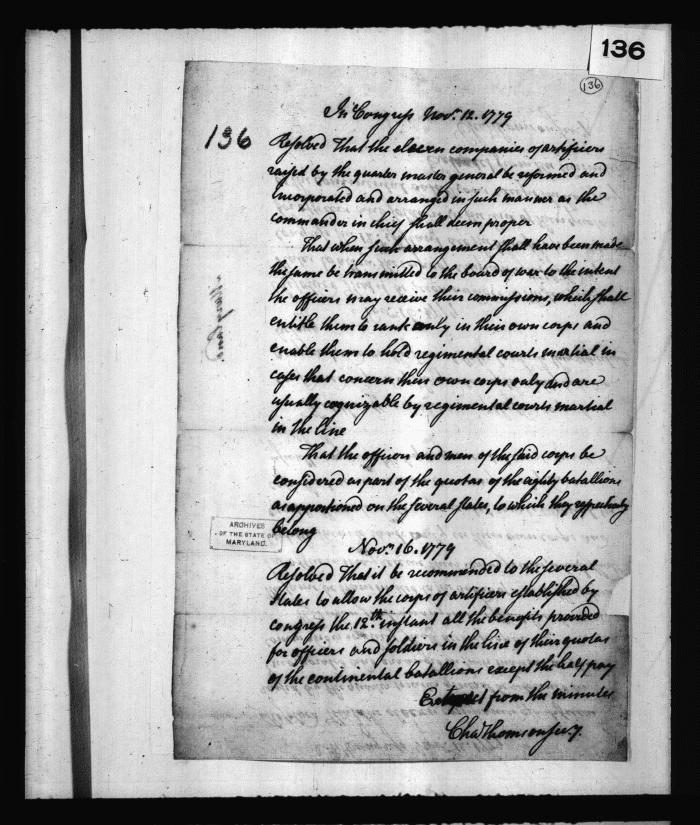 136
136
In Congress Novr. 12. 1779
136
Resolved That the eleven companies of artificers
raised by the quarter master general be reformed and
incorporated and arranged in such manner as the
commander in chief shall deem proper
That when such arrangement shall have been made
the same be transmitted to the board of war to the intent
the officers may receive their commissions, which shall
entitle them to rank only in their own corps and
enable them to hold regimental courts martial in
cases that concern their own corps only and are
usually cognizable by regimental courts martial
in the line
That the officers and men of the said corps be
considered as part of the quotas of the eighty batallions
as apportioned on the several states, to which they respectively
belong
Maryland.
ARCHIVES
OF THE STATE OF
MARYLAND.
Novr. 16. 1779
Resolved That it be recommended to the several
states to allow the corps of artificers established by
congress the 12th. instant all the benefits provided
for officers and soldiers in the line of their quotas
of the continental batallions except the half pay
Extract from the minutes
Chas Thomson secy.